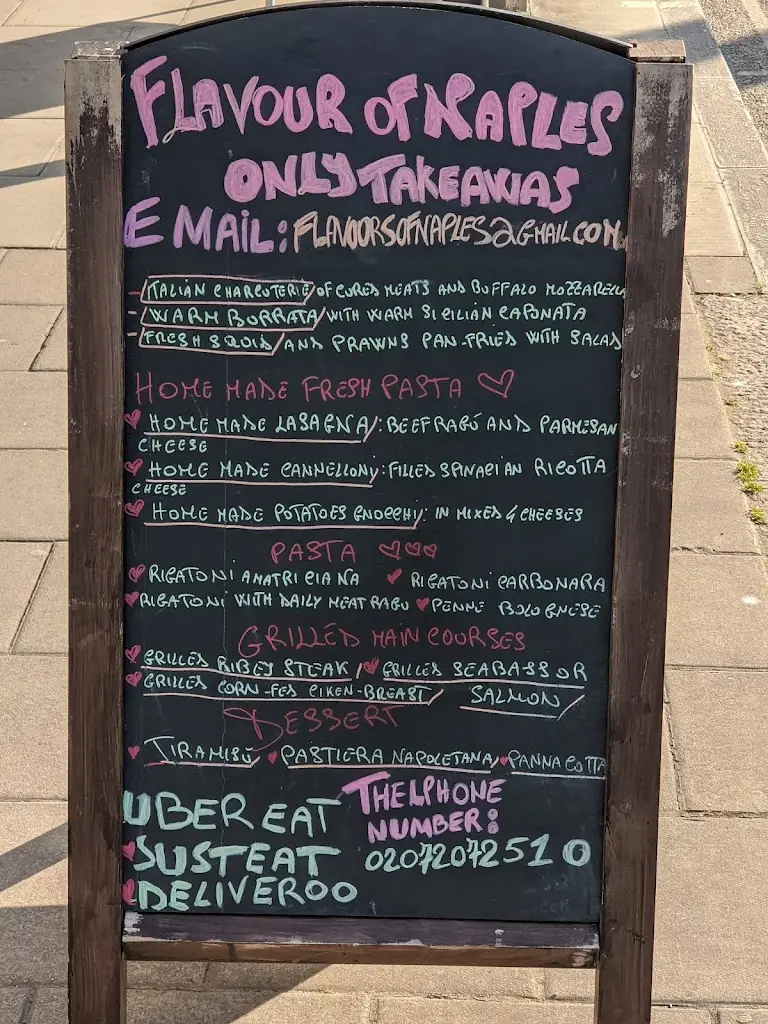 FLAVOUR OF NAPLES
ONLY TAKEAWAS
EMAIL: FLAVOORSOFNAPLES@GMAIL.COM
- ITALIAN CHARCUTERIE/ OF CURED MEATS AND BUFFALO MOZZARELLA
- WARM BURRATA/ WITH WARM SICILIAN CAPONATA
- FRESH SQUID/ AND PRAWNS PAN-FRIED WITH SALAD
HOME MADE FRESH PASTA ♡
♥ HOME MADE LASAGNA/: BEEF RAGÚ AND PARMESAN
CHEESE
♥ HOME MADE CANNELLONI/: FILLED SPINACI AN RICOTTA
CHEESE
♥ HOME MADE POTATOES GNOCCHI/: IN MIXED 4 CHEESES
PASTA ♡♡♡
♥ RIGATONI AMATRICIANA ♥ RIGATONI CARBONARA
♥ RIGATONI WITH DAILY MEAT RAGU ♥ PENNE BOLOGNESE
GRILLED MAIN COURSES
♥ GRILLED RIBEY STEAK / ♥ GRILLED SEABASS OR
♥ GRILLED CORN-FED CIKEN-BREAST/ SALMON/
DESSERT
♥ TIRAMISÚ/ ♥ PASTIERA NAPOLETANA/ ♥ PANNA COTTA
UBER EAT
♥ SUSTEAT
♥ DELIVEROO
THELPHONE
NUMBER:
02072072510